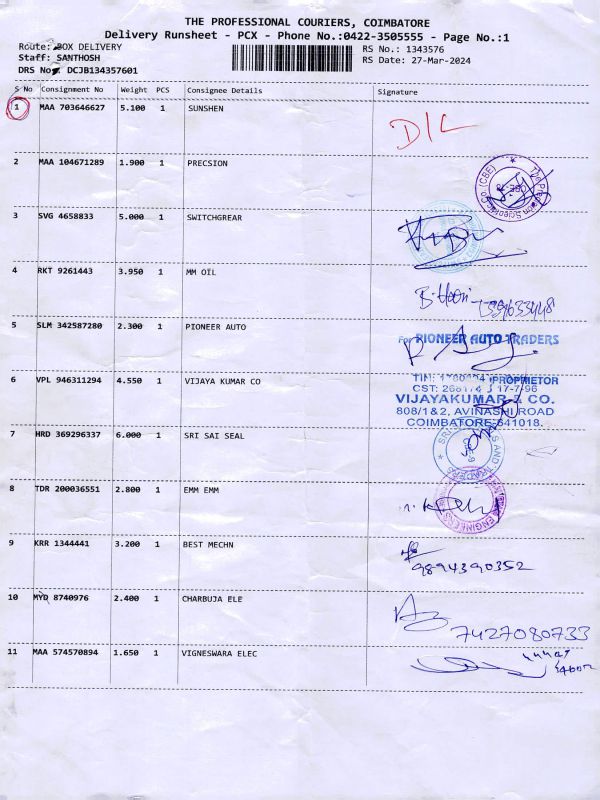 THE PROFESSIONAL COURIERS, COIMBATORE
Delivery Runsheet - PCX - Phone No.:0422-3505555 - Page No.:1
Route: BOX DELIVERY
RS No.: 1343576
Staff: SANTHOSH
RS Date: 27-Mar-2024
DRS No: DCJB134357601
S No Consignment No Weight PCS Consignee Details Signature
1 MAA 703646627 5.100 1 SUNSHEN D/L
2 MAA 104671289 1.900 1 PRECSION
3 SVG 4658833 5.000 1 SWITCHGEAR
4 RKT 9261443 3.950 1 MM OIL
5 SLM 342587280 2.300 1 PIONEER AUTO
For PIONEER AUTO TRADERS
PROPRIETOR
6 VPL 946311294 4.550 1 VIJAYA KUMAR CO
VIJAYAKUMAR & CO.
808/1&2, AVINASHI ROAD
COIMBATORE-641018.
7 HRD 369296337 6.000 1 SRI SAI SEAL
8 TDR 200036551 2.800 1 EMM EMM
9 KRR 1344441 3.200 1 BEST MECHN
9894390352
10 MYD 8740976 2.400 1 CHARBUJA ELE
7427080733
11 MAA 574570894 1.650 1 VIGNESWARA ELEC